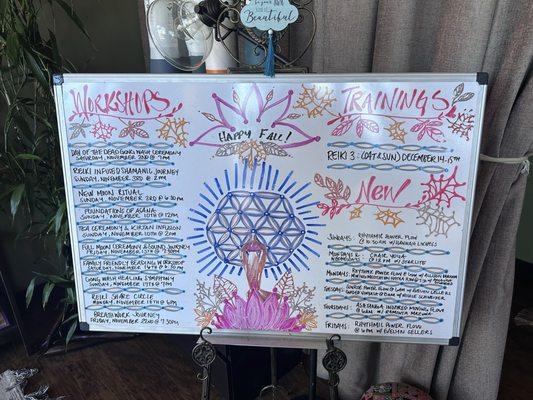 Beautiful
WORKSHOPS
DAY OF THE DEAD GONG WASH CEREMONY
SATURDAY, NOVEMBER 2ND @ 7PM
REIKI INFUSED SHAMANIC JOURNEY
SUNDAY, NOVEMBER 3RD @ 2PM
NEW MOON RITUAL
SUNDAY, NOVEMBER 3RD @ 6:30PM
FOUNDATIONS OF ASANA
SUNDAY, NOVEMBER 10TH @ 12PM
TEA CEREMONY & KIRTAN INFUSION
SUNDAY, NOVEMBER 10TH @ 2PM
FULL MOON CEREMONY & SOUND JOURNEY
FAMILY FRIENDLY BEADING WORKSHOP
SATURDAY, NOVEMBER 16TH @
GONG WASH HEALING SYMPHONY
SUNDAY, NOVEMBER 17TH @ 7PM
REIKI SHARE CIRCLE
MONDAY, NOVEMBER 18TH @ 6PM
BREATHWORK JOURNEY
FRIDAY, NOVEMBER 22ND @ 7:30PM
HAPPY FALL!
TRAININGS
REIKI 3: (SAT & SUN) DECEMBER 14-15TH
NEW
SUNDAYS: RHYTHMIC POWER FLOW
@ 10:30 AM W/
MONDAYS: CHAIR YOGA
@ 12 PM W/
MONDAYS: RHYTHMIC POWER FLOW @
TUESDAYS:
THURSDAYS: ASHTANGA INSPIRED MOVING FLOW
@ 6PM W/
FRIDAYS: RHYTHMIC POWER FLOW
@ 6PM W/ EVELYN SELLERS